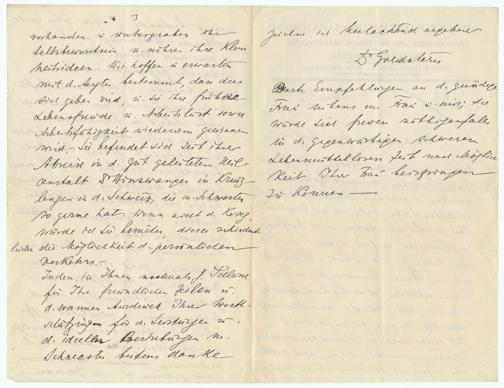 vorhanden u. untergraben ihr
Selbstbewusstsein u. nähren ihre Klein
heitsideen. Wir hoffen u. erwarten
mit d. Ärzten bestimmt, dass dies
sich geben wird, u. sie ihre frühere
Lebensfreude u. Arbeitslust sowie
Arbeitsfähigkeit wiederum gewinnen
wird. – Sie befindet sich seit ihrer
Abreise in d. gut geleiteten Heil
anstalt Dr Binswanger in Kreuz
lingen in d. Schweiz, die m. Schwester
so gerne hat, wenn auch d. Krieg
würde sie
die Möglichkeit d. persönlichen
Verkehrs. –
Indem ich Ihnen nochmals,
für Ihre freundlichen Zeilen u.
d. warmen Ausdruck Ihrer Wert
schätzung für d. Leistungen u.
d. ideellen Bestrebungen m.
Schwester bestens danke
zeichne ich hochachtend ergebenst
Dr Goldstein
Beste Empfehlungen an d. gnädige
Frau seitens m. Frau u. mir; sie
würde sich freuen nöthigenfalls
in d. gegenwärtigen schweren
Lebensmittellosen Zeit nach Möglich
keit Ihrer Frau beispringen
zu können —